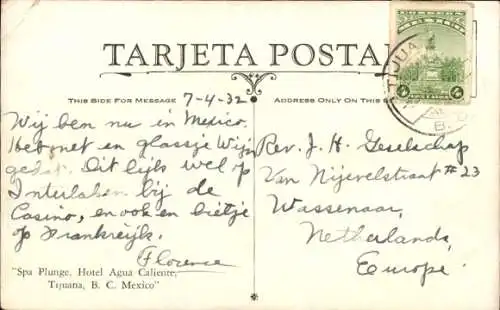 TARJETA POSTAL
THIS SIDE FOR MESSAGE
ADDRESS ONLY ON THIS
7-4-32
Wij ben nu in Mexico.
Heb net en glassje Wijn
gedr. Dit lijk wel op
Interlaken bij de
Casino, en ook en bietje
op Frankreijk.
Florence
"Spa Plunge, Hotel Agua Caliente,
Tijuana, B. C. Mexico"
Rev. J. H. Gesolschap
Van Nijeveltstraat #23
Wassenaar,
Netherlands,
Europe.
TIJUA
B.